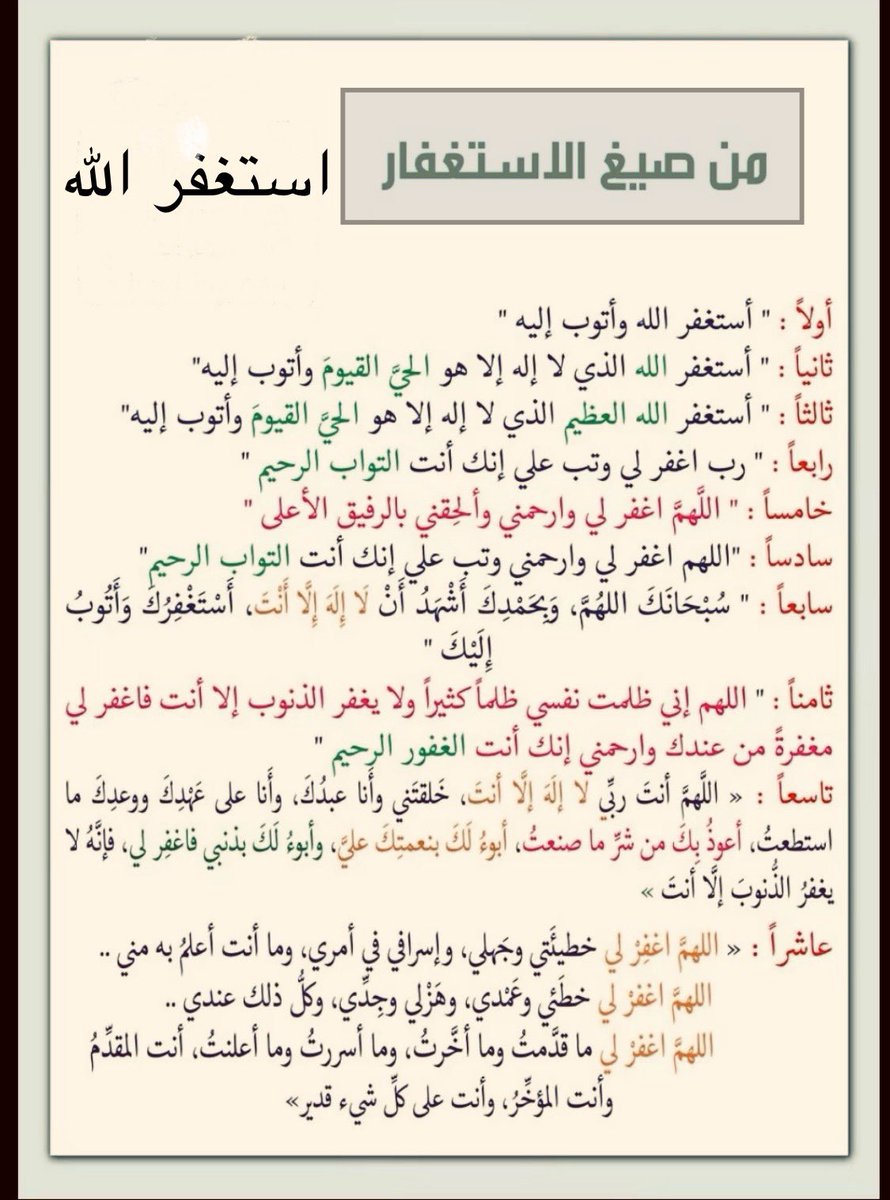 من صيغ الاستغفار
استغفر الله
أولاً : " أستغفر الله وأتوب إليه "
ثانياً : " أستغفر الله الذي لا إله إلا هو الحيَّ القيومَ وأتوب إليه"
ثالثاً : " أستغفر الله العظيم الذي لا إله إلا هو الحيَّ القيومَ وأتوب إليه"
رابعاً : " رب اغفر لي وتب علي إنك أنت التواب الرحيم "
خامساً : " اللَّهمَّ اغفر لي وارحمني وألحِقني بالرفيق الأعلى "
سادساً : "اللهم اغفر لي وارحمني وتب علي إنك أنت التواب الرحيم"
سابعاً : " سُبْحَانَكَ اللهُمَّ، وَبِحَمْدِكَ أَشْهَدُ أَنْ لَا إِلَهَ إِلَّا أَنْتَ، أَسْتَغْفِرُكَ وَأَتُوبُ
إِلَيْكَ "
ثامناً : " اللهم إني ظلمت نفسي ظلماً كثيراً ولا يغفر الذنوب إلا أنت فاغفر لي
مغفرةً من عندك وارحمني إنك أنت الغفور الرحيم "
تاسعاً : « اللَّهمَّ أنتَ ربِّي لا إلهَ إلَّا أنتَ، خَلقتَني وأَنا عبدُكَ، وأَنا على عَهْدِكَ ووعدِكَ ما
استطعتُ، أعوذُ بِكَ من شرِّ ما صنعتُ، أبوءُ لَكَ بنعمتِكَ عليَّ، وأبوءُ لَكَ بذنبي فاغفِر لي، فإنَّهُ لا
يغفرُ الذُّنوبَ إلَّا أنتَ »
عاشراً : « اللهمَّ اغفِرْ لي خطيئَتي وجَهلي، وإسرافي في أمري، وما أنت أعلمُ به مني ..
اللهمَّ اغفرْ لي خطَئي وعَمْدي، وهَزْلي وجِدِّي، وكلُّ ذلك عندي ..
اللهمَّ اغفرْ لي ما قدَّمتُ وما أخَّرتُ، وما أسررتُ وما أعلنتُ، أنت المقدِّمُ
وأنت المؤخِّرُ، وأنت على كلِّ شيء قدير»